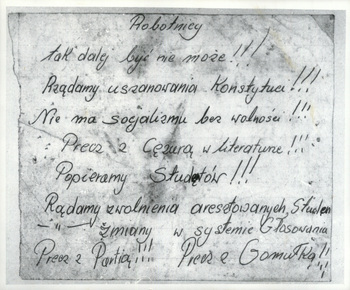 Robotnicy
tak dalej być nie może!!!
Rządamy uszanowania Konstytucji!!!
Nie ma socjalizmu bez wolności!!!
Precz z Cęzurą w literaturze!!!
Popieramy Studętów!!!
Rządamy zwolnienia aresztowanych Studen
—"— zmiany w systemie Głosowania
Precz z Partią!!! Precz z Gomułką!!!